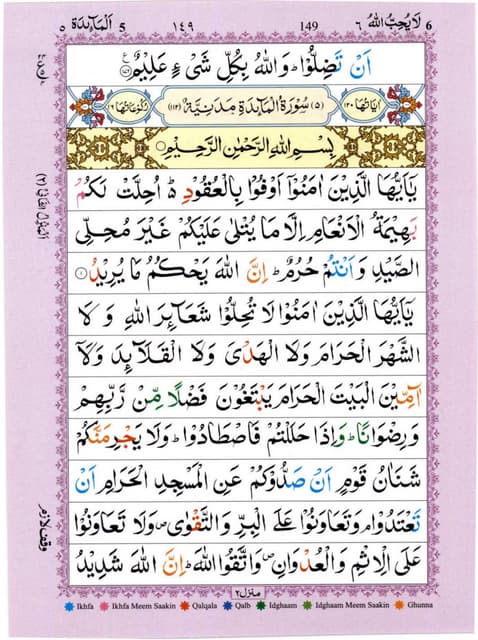 لَا يُحِبُّ اللهُ ٦ 6 149 ١٤٩ 5 اَلْمَآئِدَة ٥
اَنْ تَضِلُّوْا ؕ وَاللهُ بِكُلِّ شَیْءٍ عَلِيْمٌ
اٰيَاتُهَا ١٢٠ (٥) سُوْرَةُ الْمَآئِدَةِ مَدَنِيَّةٌ (١١٢) رُكُوْعَاتُهَا ١٦
بِسْمِ اللهِ الرَّحْمٰنِ الرَّحِيْمِ
يٰۤاَيُّهَا الَّذِيْنَ اٰمَنُوْۤا اَوْفُوْا بِالْعُقُوْدِ ؕ اُحِلَّتْ لَكُمْ
بَهِيْمَةُ الْاَنْعَامِ اِلَّا مَا يُتْلٰى عَلَيْكُمْ غَيْرَ مُحِلِّى
الصَّيْدِ وَاَنْتُمْ حُرُمٌ ؕ اِنَّ اللهَ يَحْكُمُ مَا يُرِيْدُ ١
يٰۤاَيُّهَا الَّذِيْنَ اٰمَنُوْا لَا تُحِلُّوْا شَعَآئِرَ اللهِ وَلَا
الشَّهْرَ الْحَرَامَ وَلَا الْهَدْىَ وَلَا الْقَلَآئِدَ وَلَاۤ
آٰمِّيْنَ الْبَيْتَ الْحَرَامَ يَبْتَغُوْنَ فَضْلًا مِّنْ رَّبِّهِمْ
وَرِضْوَانًا ؕ وَاِذَا حَلَلْتُمْ فَاصْطَادُوْا ؕ وَلَا يَجْرِمَنَّكُمْ
شَنَاٰنُ قَوْمٍ اَنْ صَدُّوْكُمْ عَنِ الْمَسْجِدِ الْحَرَامِ اَنْ
تَعْتَدُوْا ۘ وَتَعَاوَنُوْا عَلَى الْبِرِّ وَالتَّقْوٰى ۪ وَلَا تَعَاوَنُوْا
عَلَى الْاِثْمِ وَالْعُدْوَانِ ۪ وَاتَّقُوا اللهَ ؕ اِنَّ اللهَ شَدِيْدُ
وقف لازم
منزل ٢
Ikhfa Ikhfa Meem Saakin Qalqala Qalb Idghaam Idghaam Meem Saakin Ghunna